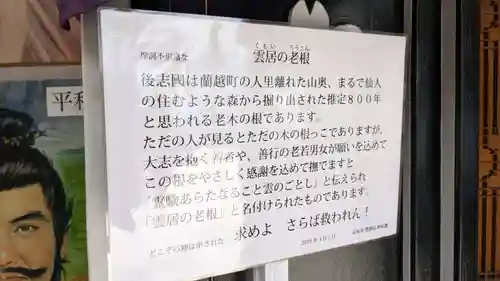 摩訶不思議な
くもい ろうこん
雲居の老根
後志國は蘭越町の人里離れた山奥、まるで仙人
の住むような森から掘り出された推定800年
と思われる老木の根であります。
ただの人が見るとただの木の根っこでありますが、
大志を抱く若者や、善行の老若男女が願いを込めて
この根をやさしく感謝を込めて撫でますと
「霊験あらたなること雲のごとし」と伝えられ
「雲居の老根」と名付けられたものであります。
求めよ さらば救われん!
どこぞの神は申された
平和